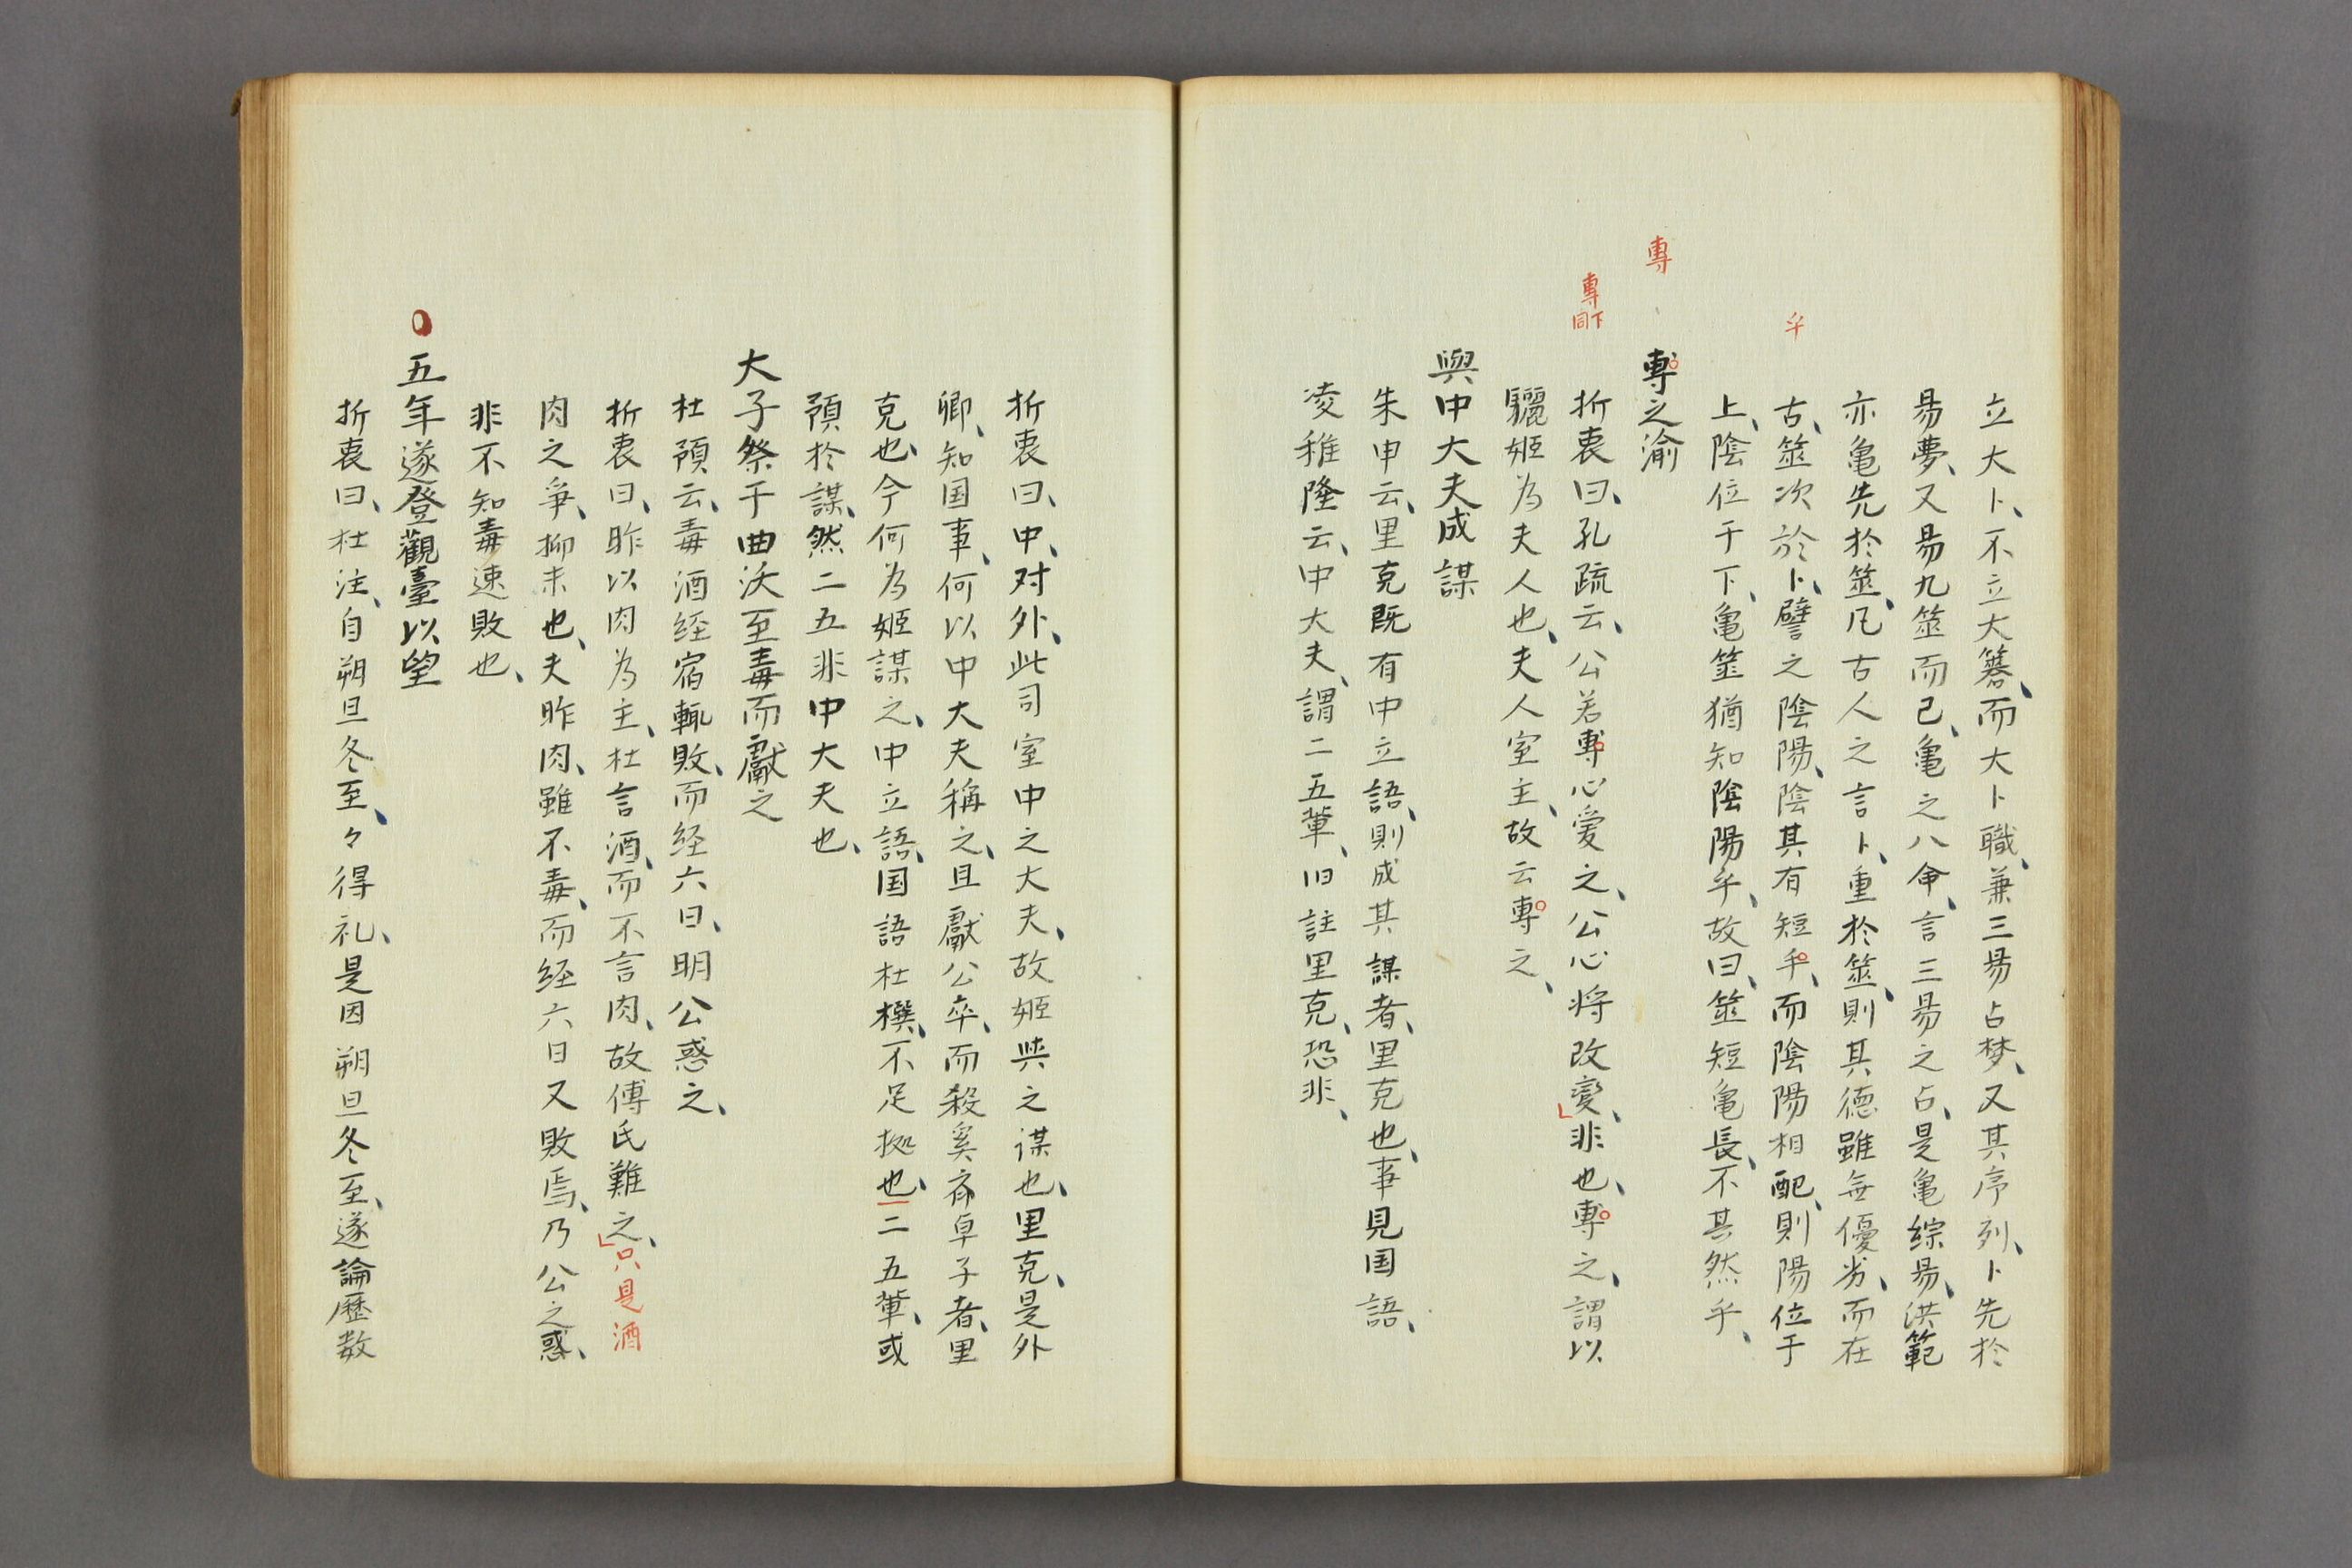 立大卜、不立大簭、而大卜職、兼三易占梦、又其序列、卜先於
易夢、又易九筮而已、亀之八命、言三易之占、是亀綜易、洪範
亦亀先於筮、凡古人之言卜、重於筮、則其徳雖無優劣、而在
乎
古、筮次於卜、譬之陰陽、陰其有短乎、而陰陽相配、則陽位于
上、陰位于下、亀筮猶知陰陽乎、故曰、筮短亀長、不其然乎、
專
專之渝
專
下同
折衷曰、孔疏云、公若專心愛之、公心将改變、非也、專之、謂以
驪姫為夫人也、夫人室主、故云專之、
與中大夫成謀
朱申云、里克既有中立語、則成其謀者、里克也、事見国語、
凌稚隆云、中大夫、謂二五輩、旧註里克、恐非、
折衷曰、中、対外、此司室中之大夫、故姫与之謀也、里克、是外
卿、知国事、何以中大夫稱之、且獻公卒、而殺奚斉卓子者、里
克也、今何為姫謀之、中立語、国語杜撰、不足拠也、二五輩、或
預於謀、然二五非中大夫也、
大子祭于曲沃至毒而獻之
杜預云、毒酒経宿輒敗、而経六日、明公惑之、
折衷曰、昨以肉為主、杜言酒、而不言肉、故傅氏難之、只是酒
肉之爭、抑末也、夫昨肉、雖不毒、而経六日又敗焉、乃公之惑、
非不知毒速敗也、
五年遂登觀臺以望
折衷曰、杜注、自朔旦冬至、々得礼、是因朔旦冬至、遂論歴数